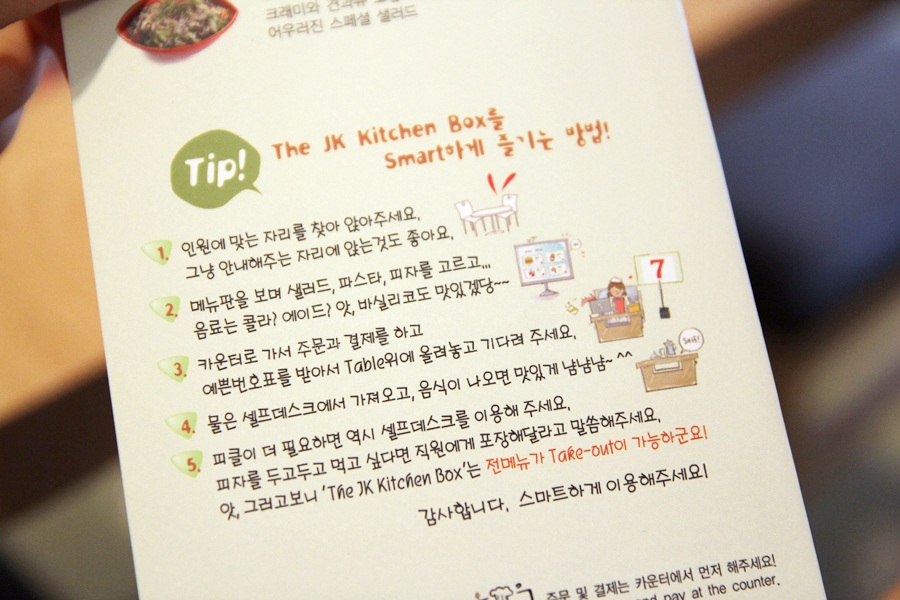 크래미와 견과류
어우러진 스페셜 샐러드
Tip!
The JK Kitchen Box를
Smart하게 즐기는 방법!
1. 인원에 맞는 자리를 찾아 앉아주세요.
그냥 안내해주는 자리에 앉는것도 좋아요.
2. 메뉴판을 보며 샐러드, 파스타, 피자를 고르고...
음료는 콜라? 에이드? 앗, 바실리코도 맛있겠당~~
7
3. 카운터로 가서 주문과 결제를 하고
예쁜번호표를 받아서 Table위에 올려놓고 기다려 주세요.
Self!
4. 물은 셀프데스크에서 가져오고, 음식이 나오면 맛있게 냠냠냠~ ^^
5. 피클이 더 필요하면 역시 셀프데스크를 이용해 주세요.
피자를 두고두고 먹고 싶다면 직원에게 포장해달라고 말씀해주세요.
앗, 그러고보니 'The JK Kitchen Box'는 전메뉴가 Take-out이 가능하군요!
감사합니다. 스마트하게 이용해주세요!
주문 및 결제는 카운터에서 먼저 해주세요!
and pay at the counter.